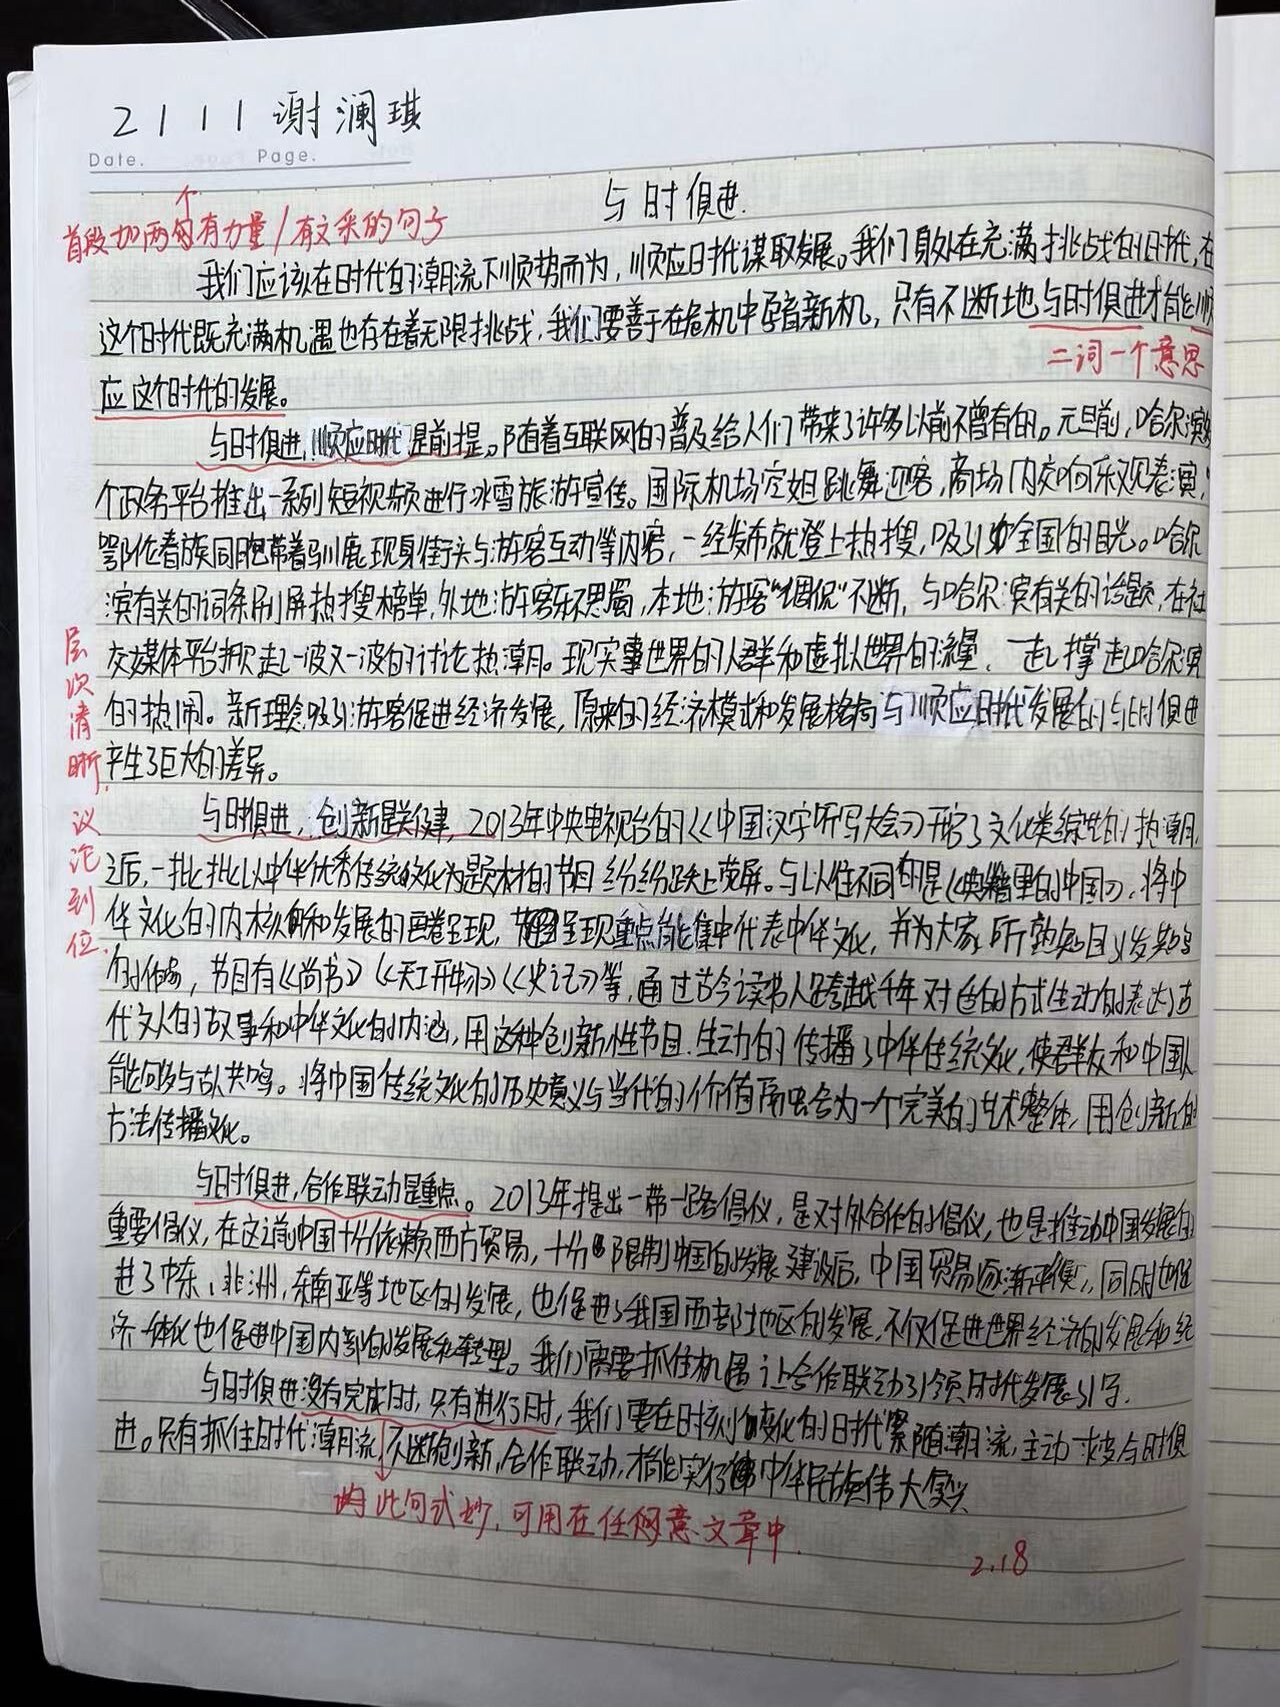 2111 谢澜琪
Date. Page.
与时俱进.
首段加两句有力量/有文采的句子
我们应该在时代的潮流下顺势而为,顺应时代谋取发展。我们身处在充满挑战的时代,在
这个时代既充满机遇也存在着无限挑战,我们要善于在危机中孕育新机,只有不断地与时俱进才能顺
二词一个意思
应这个时代的发展。
与时俱进,顺应时代是前提。随着互联网的普及给人们带来了许多以前不曾有的。元旦前,哈尔滨
个政务平台推出一系列短视频进行冰雪旅游宣传。国际机场空姐跳舞迎客,商场内交响乐观表演,
鄂伦春族同胞带着驯鹿现身街头与游客互动等内容,一经发布就登上热搜,吸引全国的目光。哈尔
滨有关的词条刷屏热搜榜单,外地游客乐不思蜀,本地游客“调侃”不断,与哈尔滨有关的话题,在社
交媒体平台掀起一波又一波的讨论热潮。现实世界的人群和虚拟世界的流量,一起撑起哈尔滨
的热闹。新理念吸引游客促进经济发展,原来的经济模式和发展格局与顺应时代发展的与时俱进
产生了巨大的差异。
层次清晰,议论到位.
与时俱进,创新是关键,2013年中央电视台的《中国汉字听写大会》开启了文化类综艺的热潮,
之后,一批批以中华优秀传统文化为题材的节目纷纷跃上荧屏。与以往不同的是《典籍里的中国》,将中
华文化的内核和发展的画卷呈现,节目呈现重点能集中代表中华文化,并为大家所熟知且以发共鸣
的作品,节目有《尚书》《天工开物》《史记》等,通过古今读书人跨越千年对话的方式生动的表达古
代文人的故事和中华文化的内涵,用这种创新性节目.生动的传播了中华传统文化,使群众和中国人
能够与古人共鸣。将中国传统文化的历史意义与当代的价值融合为一个完美的艺术整体,用创新的
方法传播文化。
与时俱进,合作联动是重点。2013年提出一带一路倡仪,是对外合作的倡仪,也是推动中国发展的
重要倡仪,在这之前中国十分依赖西方贸易,十分限制中国的发展建设后,中国贸易逐渐平衡,同时也促
进了中东、非洲,东南亚等地区的发展,也促进了我国西部地区的发展,不仅促进世界经济的发展和经
济一体化也促进中国内部的发展和转型。我们需要抓住机遇让合作联动引领时代发展.
与时俱进没有完成时,只有进行时,我们要在时刻变化的时代紧随潮流,主动求变与时俱
进。只有抓住时代潮流,不断创新,合作联动,才能实行中华民族伟大复兴
此句式妙,可用在任何意文章中.
2.18